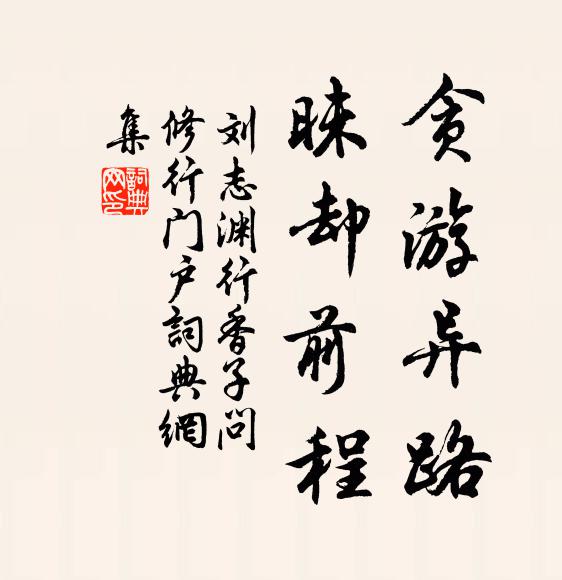 贪游异路
睐却前程
刘志渊行香子问
修行门户詞典網
集
詞典
网印